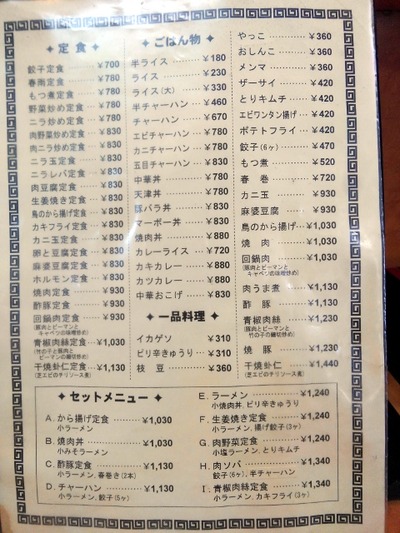 ✦ 定食 ✦
餃子定食 ¥700
春雨定食 ¥780
もつ煮定食 ¥780
野菜炒め定食 ¥780
ニラ炒め定食 ¥780
肉野菜炒め定食 ¥830
肉ニラ炒め定食 ¥830
ニラ玉定食 ¥830
ニラレバ定食 ¥830
肉豆腐定食 ¥830
生姜焼き定食 ¥830
鳥のから揚げ定食 ¥830
カキフライ定食 ¥830
カニ玉定食 ¥830
卵と豆腐定食 ¥830
麻婆豆腐定食 ¥830
ホルモン定食 ¥830
焼肉定食 ¥930
酢豚定食 ¥930
回鍋肉定食 ¥930
(豚肉とピーマンと
キャベツの味噌炒め)
青椒肉絲定食 ¥1,030
(竹の子と豚肉と
ピーマンの細切炒め)
干焼蝦仁定食 ¥1,130
(芝エビのチリソース煮)
✦ ごはん物 ✦
半ライス ¥180
ライス ¥230
ライス(大) ¥330
半チャーハン ¥460
チャーハン ¥670
エビチャーハン ¥780
カニチャーハン ¥780
五目チャーハン ¥830
中華丼 ¥780
天津丼 ¥780
豚バラ丼 ¥830
マーボー丼 ¥830
焼肉丼 ¥880
カレーライス ¥720
カキカレー ¥880
カツカレー ¥880
中華おこげ ¥830
✦ 一品料理 ✦
イカゲソ ¥310
ピリ辛きゅうり ¥310
枝豆 ¥360
やっこ ¥360
おしんこ ¥360
メンマ ¥360
ザーサイ ¥420
とりキムチ ¥420
エビワンタン揚げ ¥420
ポテトフライ ¥420
餃子(6ヶ) ¥470
もつ煮 ¥520
春巻 ¥720
カニ玉 ¥930
麻婆豆腐 ¥930
鳥のから揚げ ¥1,030
焼肉 ¥1,030
回鍋肉 ¥1,030
(豚肉とピーマンと
キャベツの味噌炒め)
肉うま煮 ¥1,130
酢豚 ¥1,130
青椒肉絲 ¥1,130
(豚肉とピーマンと
竹の子の細切炒め)
焼豚 ¥1,230
干焼蝦仁 ¥1,440
(芝エビのチリソース煮)
✦ セットメニュー ✦
A.から揚げ定食 ¥1,030
小ラーメン
B.焼肉丼 ¥1,030
小みそラーメン
C.酢豚定食 ¥1,130
小ラーメン,春巻き(2本)
D.チャーハン ¥1,130
小ラーメン,餃子(5ヶ)
E.ラーメン ¥1,240
小焼肉丼,ピリ辛きゅうり
F.生姜焼き定食 ¥1,240
小ラーメン,揚げ餃子(3ヶ)
G.肉野菜定食 ¥1,240
小塩ラーメン,とりキムチ
H.肉ソバ ¥1,340
餃子(6ヶ),半チャーハン
I.青椒肉絲定食 ¥1,340
小ラーメン,カキフライ(3ヶ)